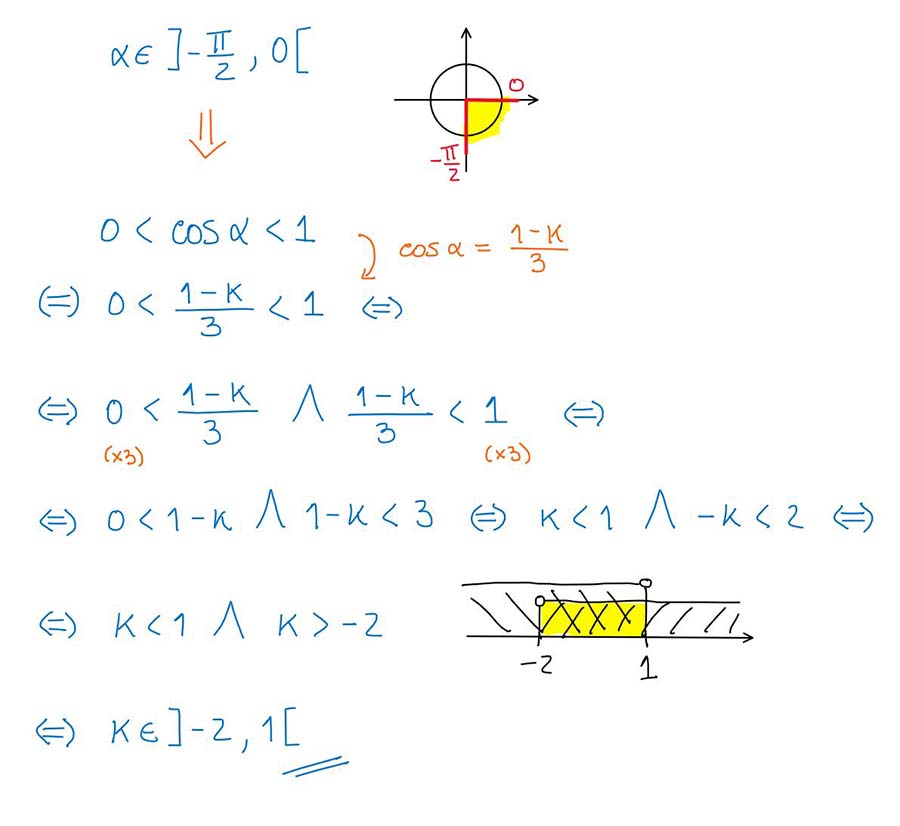 α∈ ]-π/2, 0[
0
-π/2
⇓
0 < cos α < 1
cos α = (1-K)/3
(=) 0 < (1-K)/3 < 1 (=)
(=) 0 < (1-K)/3 ∧ (1-K)/3 < 1 (=)
(×3) (×3)
(=) 0 < 1-K ∧ 1-K < 3 (=) K < 1 ∧ -K < 2 (=)
(=) K < 1 ∧ K > -2
-2 1
(=) K∈ ]-2, 1[